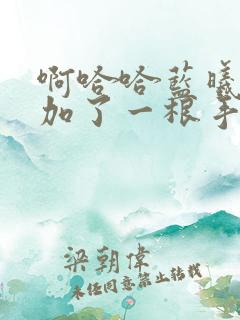 啊哈哈蓝曦
加了一根手
梁朝偉
未经同意禁止转载